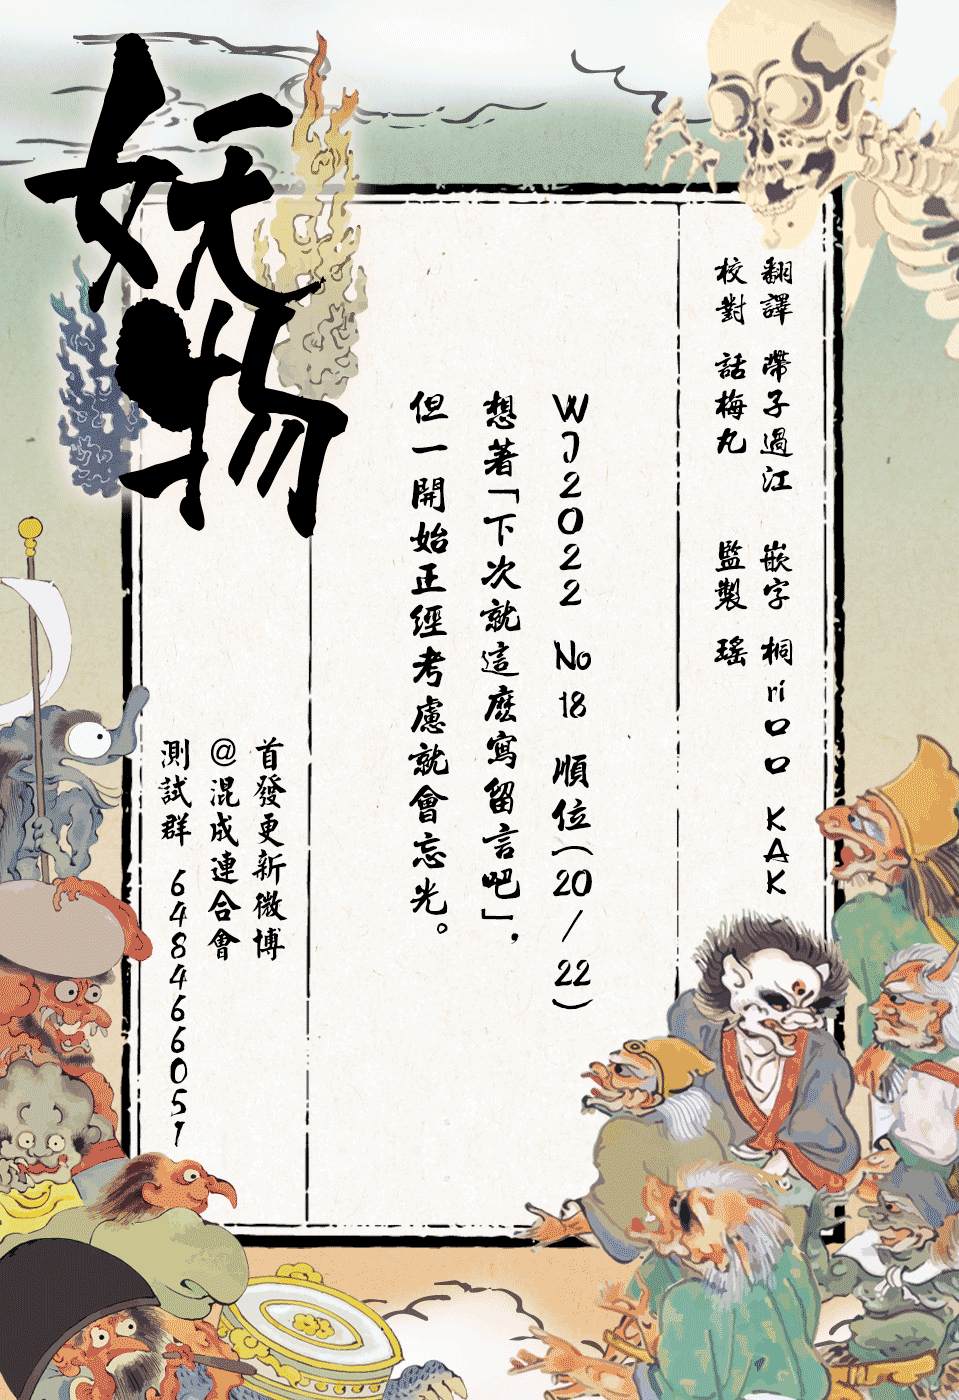 妖物
翻譯 帶子過江 嵌字 桐ri口口 KAK
校對 話梅丸 監製 瑤
WJ2022 No18 順位(20/22)
想著「下次就這麼寫留言吧」，
但一開始正經考慮就會忘光。
首發更新微博
@混成連合會
測試群 648466051